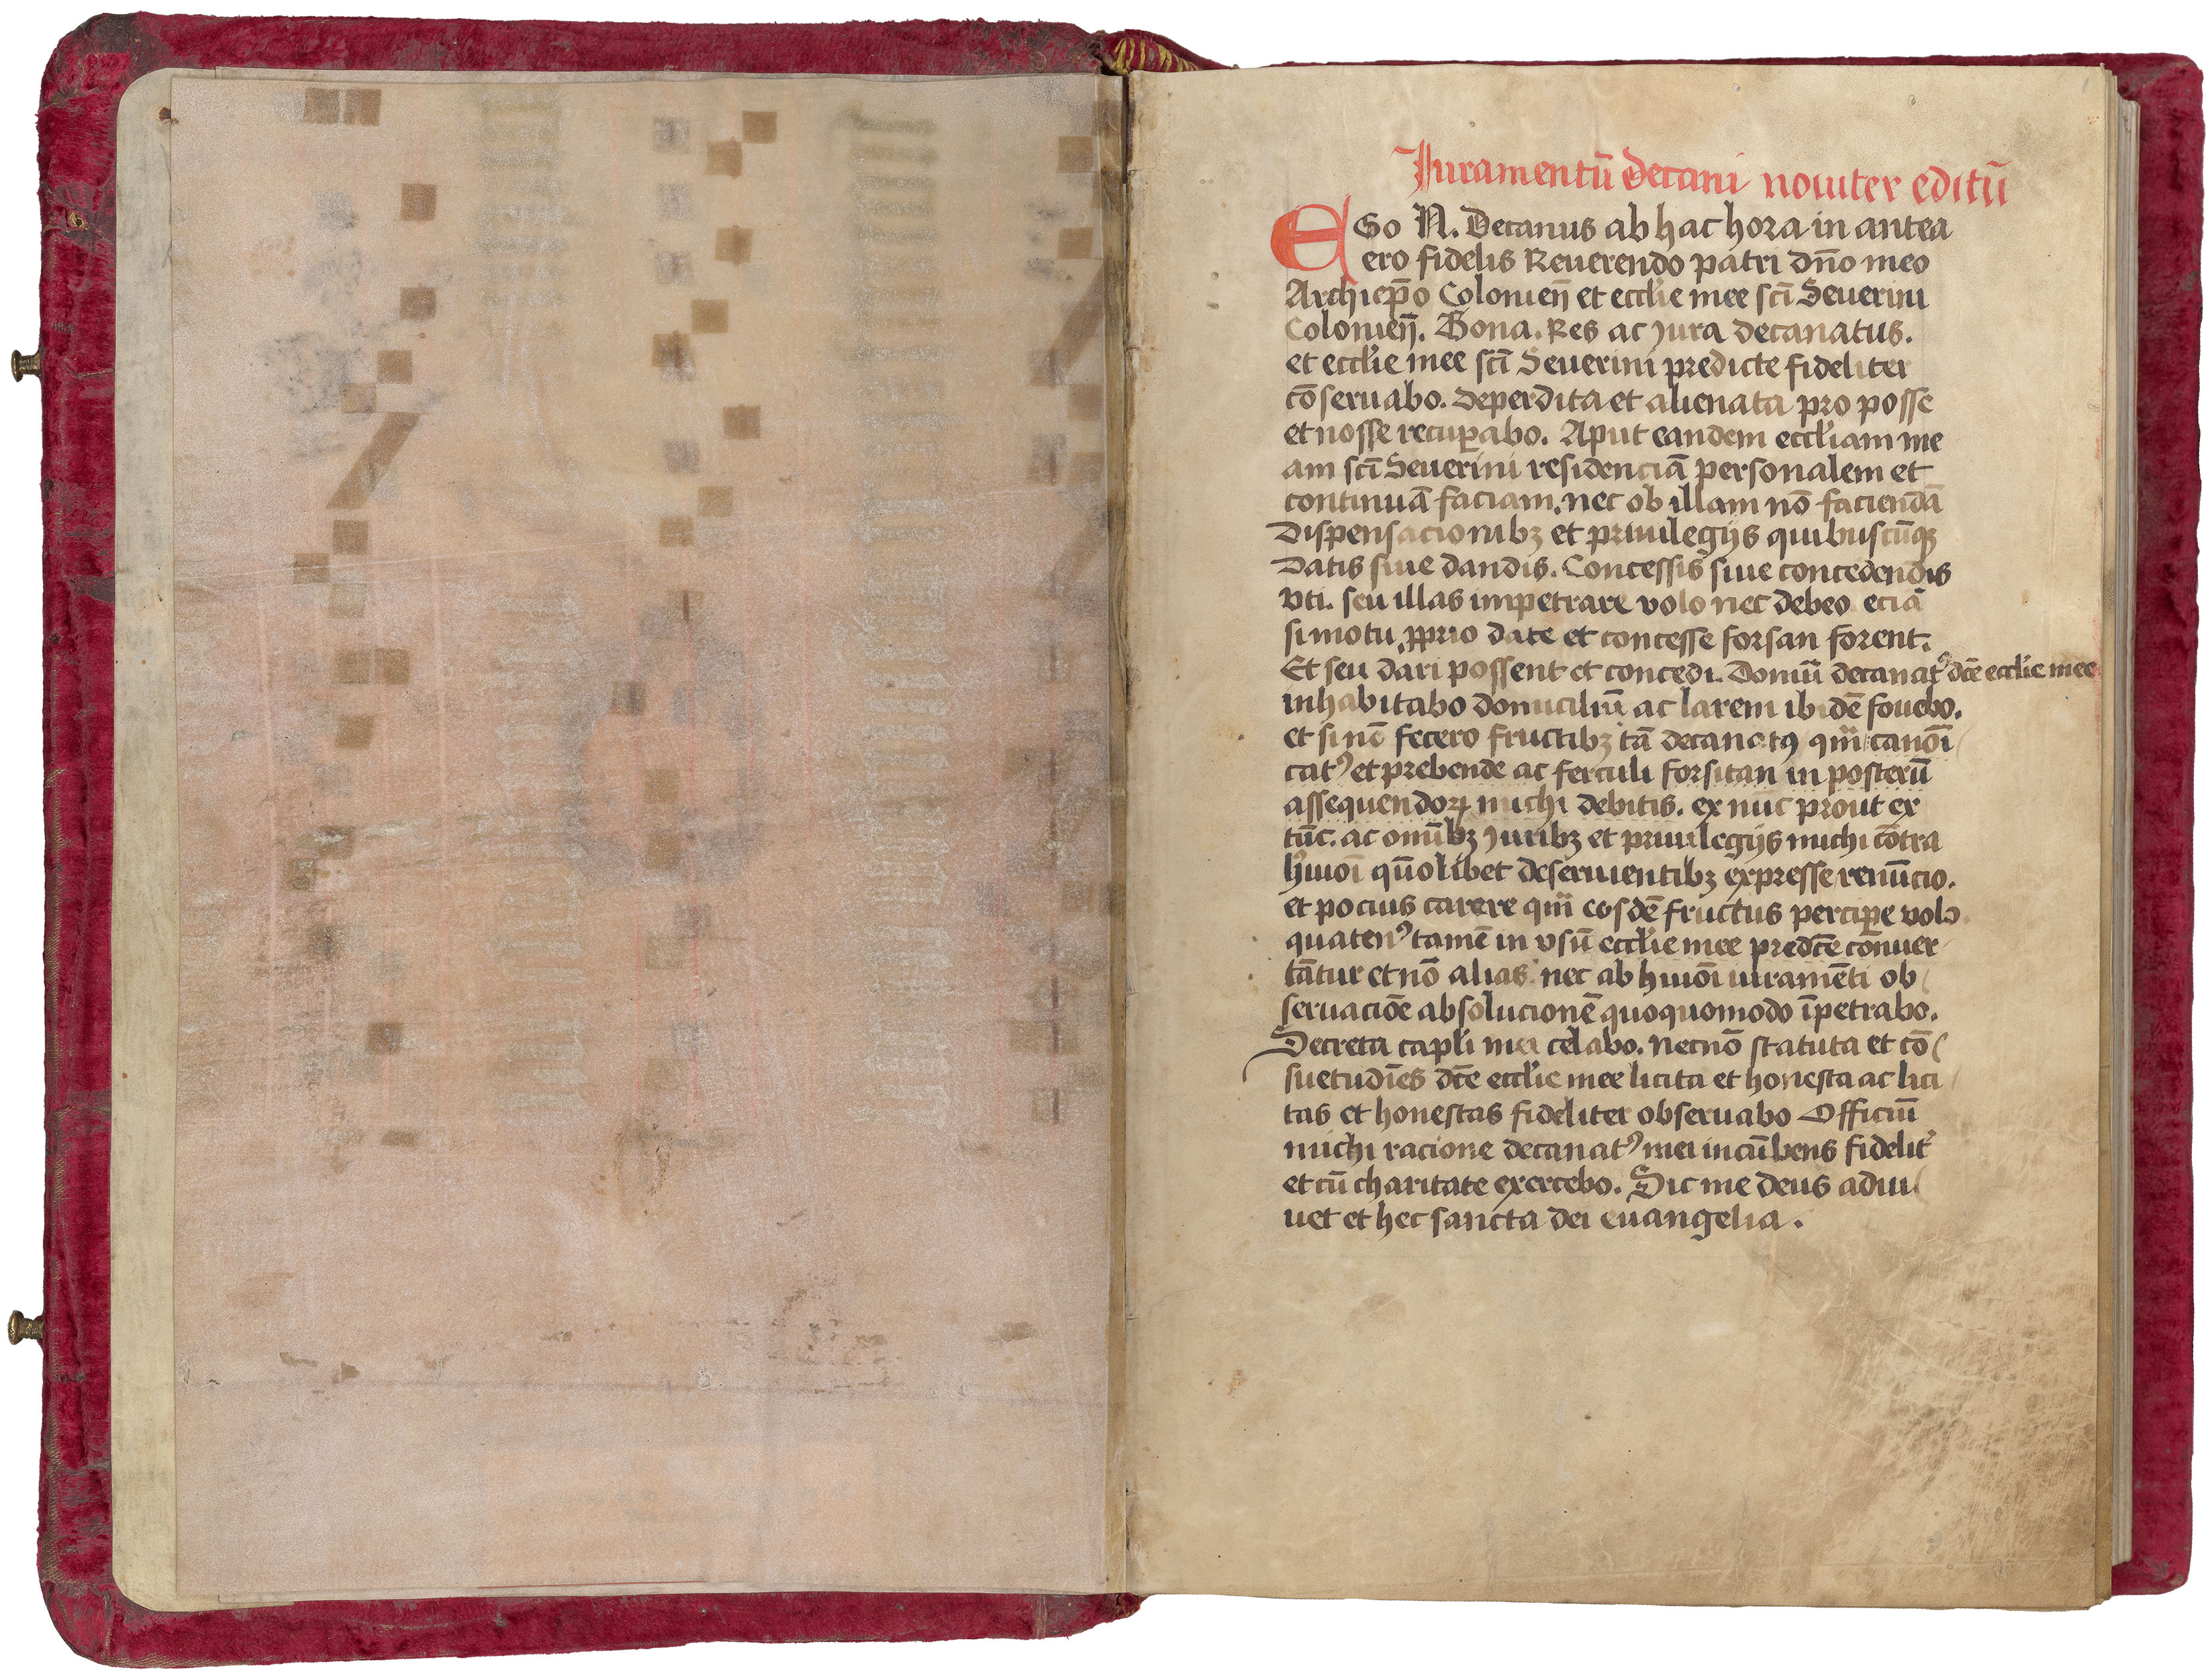 Iuramentū decani nouiter editū
EGo N. Decanus ab hac hora in antea
ero fidelis Reuerendo patri dn̄o meo
Archiep̄o Colonien̄ et eccl'ie mee sc̄i Seuerini
Colonien̄. Bona. Res ac Jura decanatus.
et eccl'ie mee sc̄i Seuerini predicte fideliter
cōseruabo. Deperdita et alienata pro posse
et nosse recuꝑabo. Aput eandem eccl'iam me
am sc̄i Seuerini residenciā personalem et
continuā faciam. nec ob illam nō faciendā
Dispensacionibꝫ et priuilegijs quibuscūqꝫ
Datis siue dandis. Concessis siue concedendis
vti. seu illas impetrare volo nec debeo eciā
si motu ꝓprio date et concesse forsan forent.
Et seu dari possent et concedi. Domū decanatꝰ dc̄e eccl'ie mee
inhabitabo domiciliū ac larem ibidē fouebo.
et si nō fecero fructibꝫ tā decanatꝰ qm̄ canoī
catꝰ et prebende ac ferculi forsitan in posterū
assequendoꝝ michi debitis. ex nūc prout ex
tūc. ac om̄ibꝫ Juribꝫ et priuilegijs michi cōtra
hmōi qūolibet deseruientibꝫ expresse renūcio.
et pocius carere qm̄ eosdē fructus perciꝑe volo
quatenꝰ tamē in vsū eccl'ie mee predc̄e cōnuer
tātur et nō alias nec ab hmōi iuramēti ob
seruacōe absolucionē quoquomodo īpetrabo.
Decreta capl'i mei celabo. necnō statuta et cō
suetudīes dc̄e eccl'ie mee licita et honesta ac lici
tas et honestas fideliter obseruabo Officiū
michi racione decanatꝰ mei incūbens fidelit'
et cū charitate exercebo. Sic me deus adiu
uet et hec sancta dei euangelia.